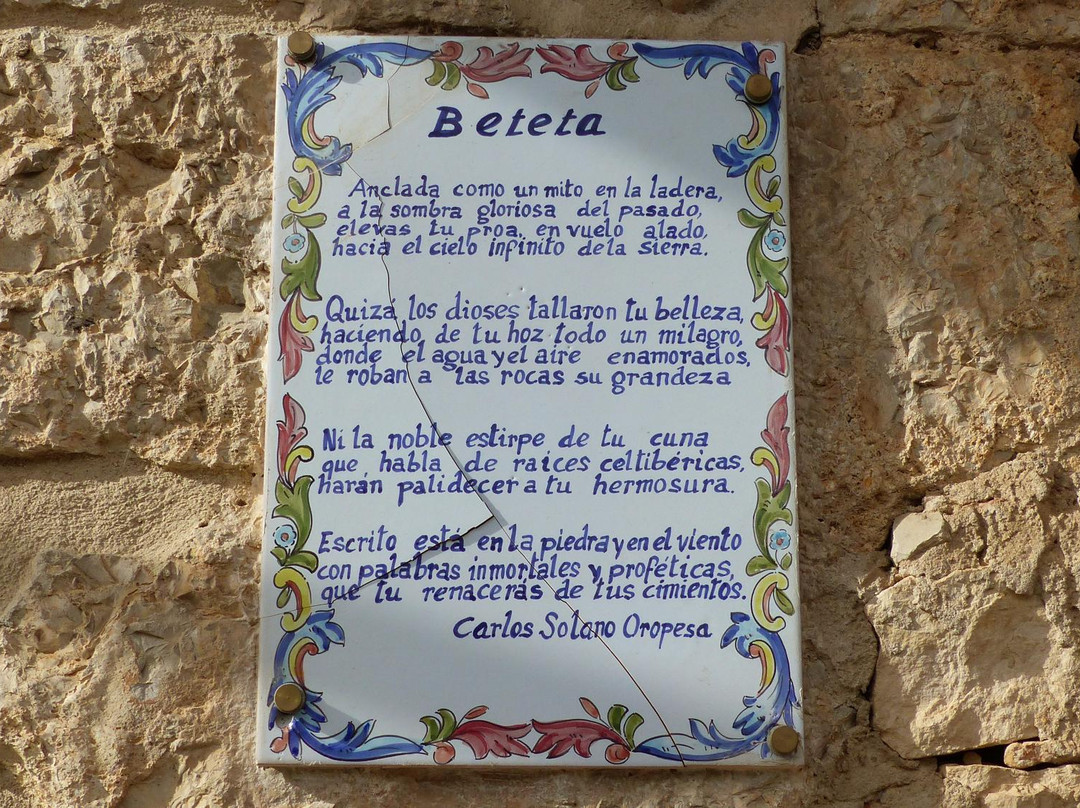 Beteta
Anclada como un mito en la ladera,
a la sombra gloriosa del pasado,
elevas tu proa, en vuelo alado,
hacia el cielo infinito de la sierra.
Quizá los dioses tallaron tu belleza,
haciendo de tu hoz todo un milagro,
donde el agua y el aire enamorados,
le roban a las rocas su grandeza
Ni la noble estirpe de tu cuna
que habla de raíces celtibéricas,
harán palidecer a tu hermosura.
Escrito está en la piedra y en el viento
con palabras inmortales y proféticas,
que tu renacerás de tus cimientos.
Carlos Solano Oropesa